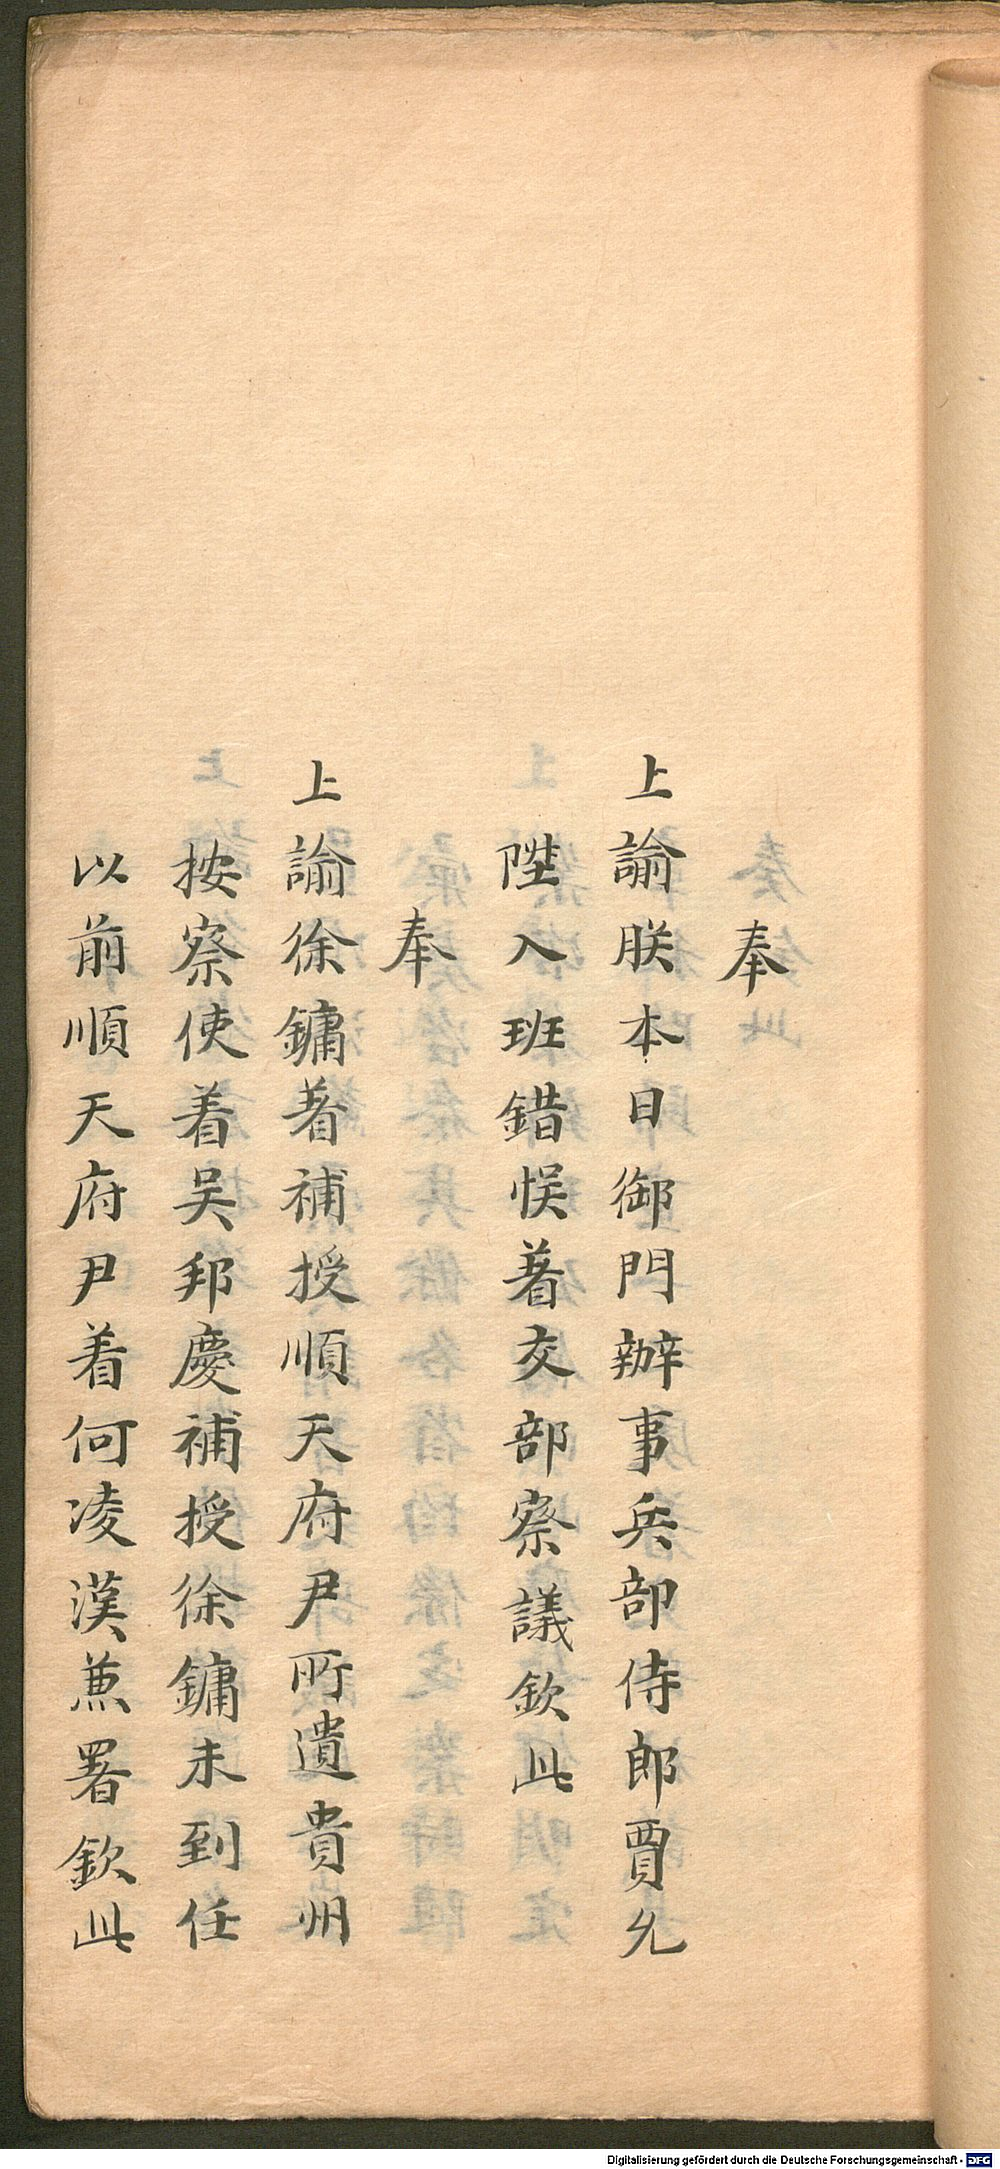 奉
上諭朕本日御門辦事兵部侍郎賈允
陞入班錯悮著交部察議欽此
奉
上諭徐鏞著補授順天府尹所遺貴州
按察使着吴邦慶補授徐鏞未到任
以前順天府尹着何凌漢蕪署欽此
Digitalisierung gefördert durch die Deutsche Forschungsgemeinschaft - DFG